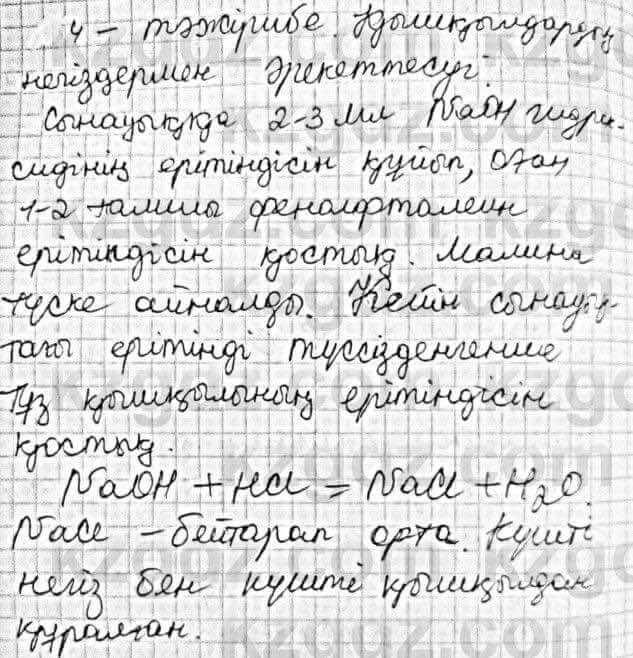 4 – тәжірибе. Қышқылдардың
негіздермен әрекеттесуі.
Сынауыққа 2-3 мл NaOH гидро-
сидінің ерітіндісін құйып, оған
1-2 тамшы фенолфталеин
ерітіндісін қостық. Малина
түске айналды. Кейін сынауық-
тағы ерітінді түссізденгенше
тұз қышқылының ерітіндісін
қостық.
NaOH + HCl = NaCl + H₂O.
NaCl – бейтарап орта. Күшті
негіз бен күшті қышқылдан
құралған.